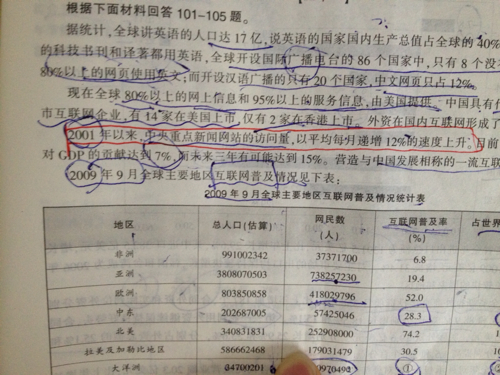 根据下面材料回答 101-105 题。
据统计，全球讲英语的人口达 17 亿，说英语的国家国内生产总值占全球的 40%
的科技书刊和译著都用英语，全球开设国际广播电台的 86 个国家中，只有 8 个没
80%以上的网页使用英文；而开设汉语广播的只有 20 个国家，中文网页只占 12%。
现在全球 80%以上的网上信息和 95%以上的服务信息，由美国提供。中国具有
市互联网企业，有 14 家在美国上市，仅有 2 家在香港上市。外资在国内互联网形成了
2001 年以来，中央重点新闻网站的访问量，以平均每月递增 12%的速度上升。目前
对 GDP 的贡献达到 7%，而未来三年有可能达到 15%。营造与中国发展相称的一流互联
2009 年 9 月全球主要地区互联网普及情况见下表：
2009 年 9 月全球主要地区互联网普及情况统计表
地区 总人口(估算) 网民数(人) 互联网普及率(%) 占世界
非洲 991002342 37371700 6.8
亚洲 3808070503 738257230 19.4
欧洲 803850858 418029796 52.0
中东 202687005 57425046 28.3
北美 340831831 252908000 74.2
拉美及加勒比地区 586662468 179031479 30.5
大洋洲 34700201